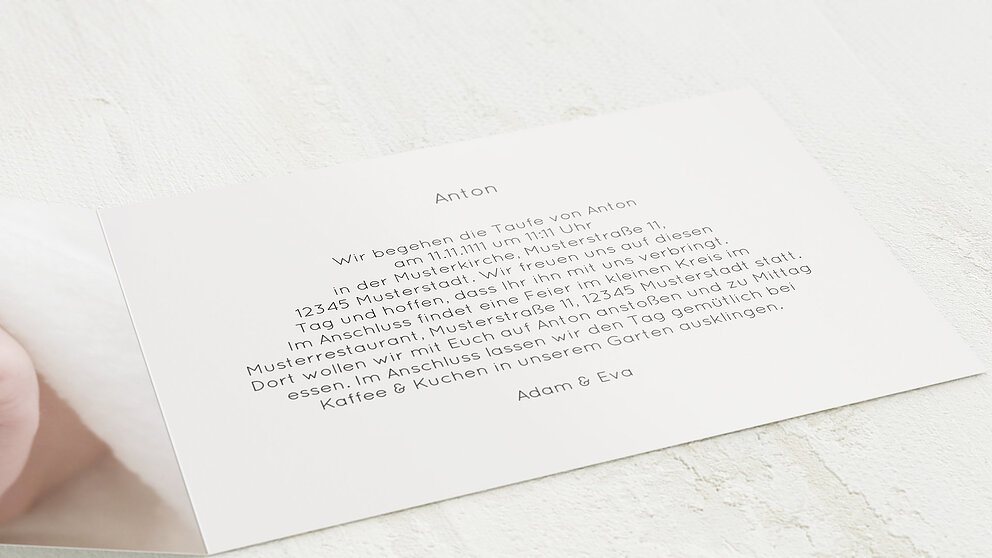 Anton
Wir begehen die Taufe von Anton
am 11.11.1111 um 11:11 Uhr
in der Musterkirche, Musterstraße 11,
12345 Musterstadt. Wir freuen uns auf diesen
Tag und hoffen, dass Ihr ihn mit uns verbringt.
Im Anschluss findet eine Feier im kleinen Kreis im
Musterrestaurant, Musterstraße 11, 12345 Musterstadt statt.
Dort wollen wir mit Euch auf Anton anstoßen und zu Mittag
essen. Im Anschluss lassen wir den Tag gemütlich bei
Kaffee & Kuchen in unserem Garten ausklingen.
Adam & Eva